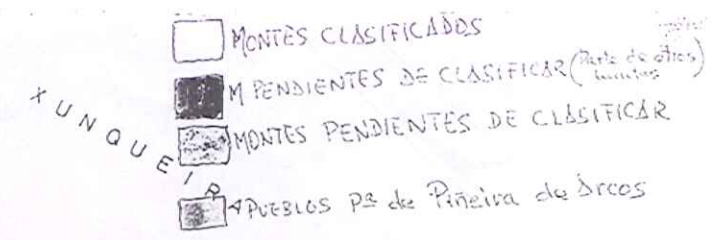 MONTES CLASIFICADOS
M PENDIENTES DE CLASIFICAR (Parte de otros montes)
MONTES PENDIENTES DE CLASIFICAR
PUEBLOS Pª de Piñeira de Arcos
XUNQUEIRA